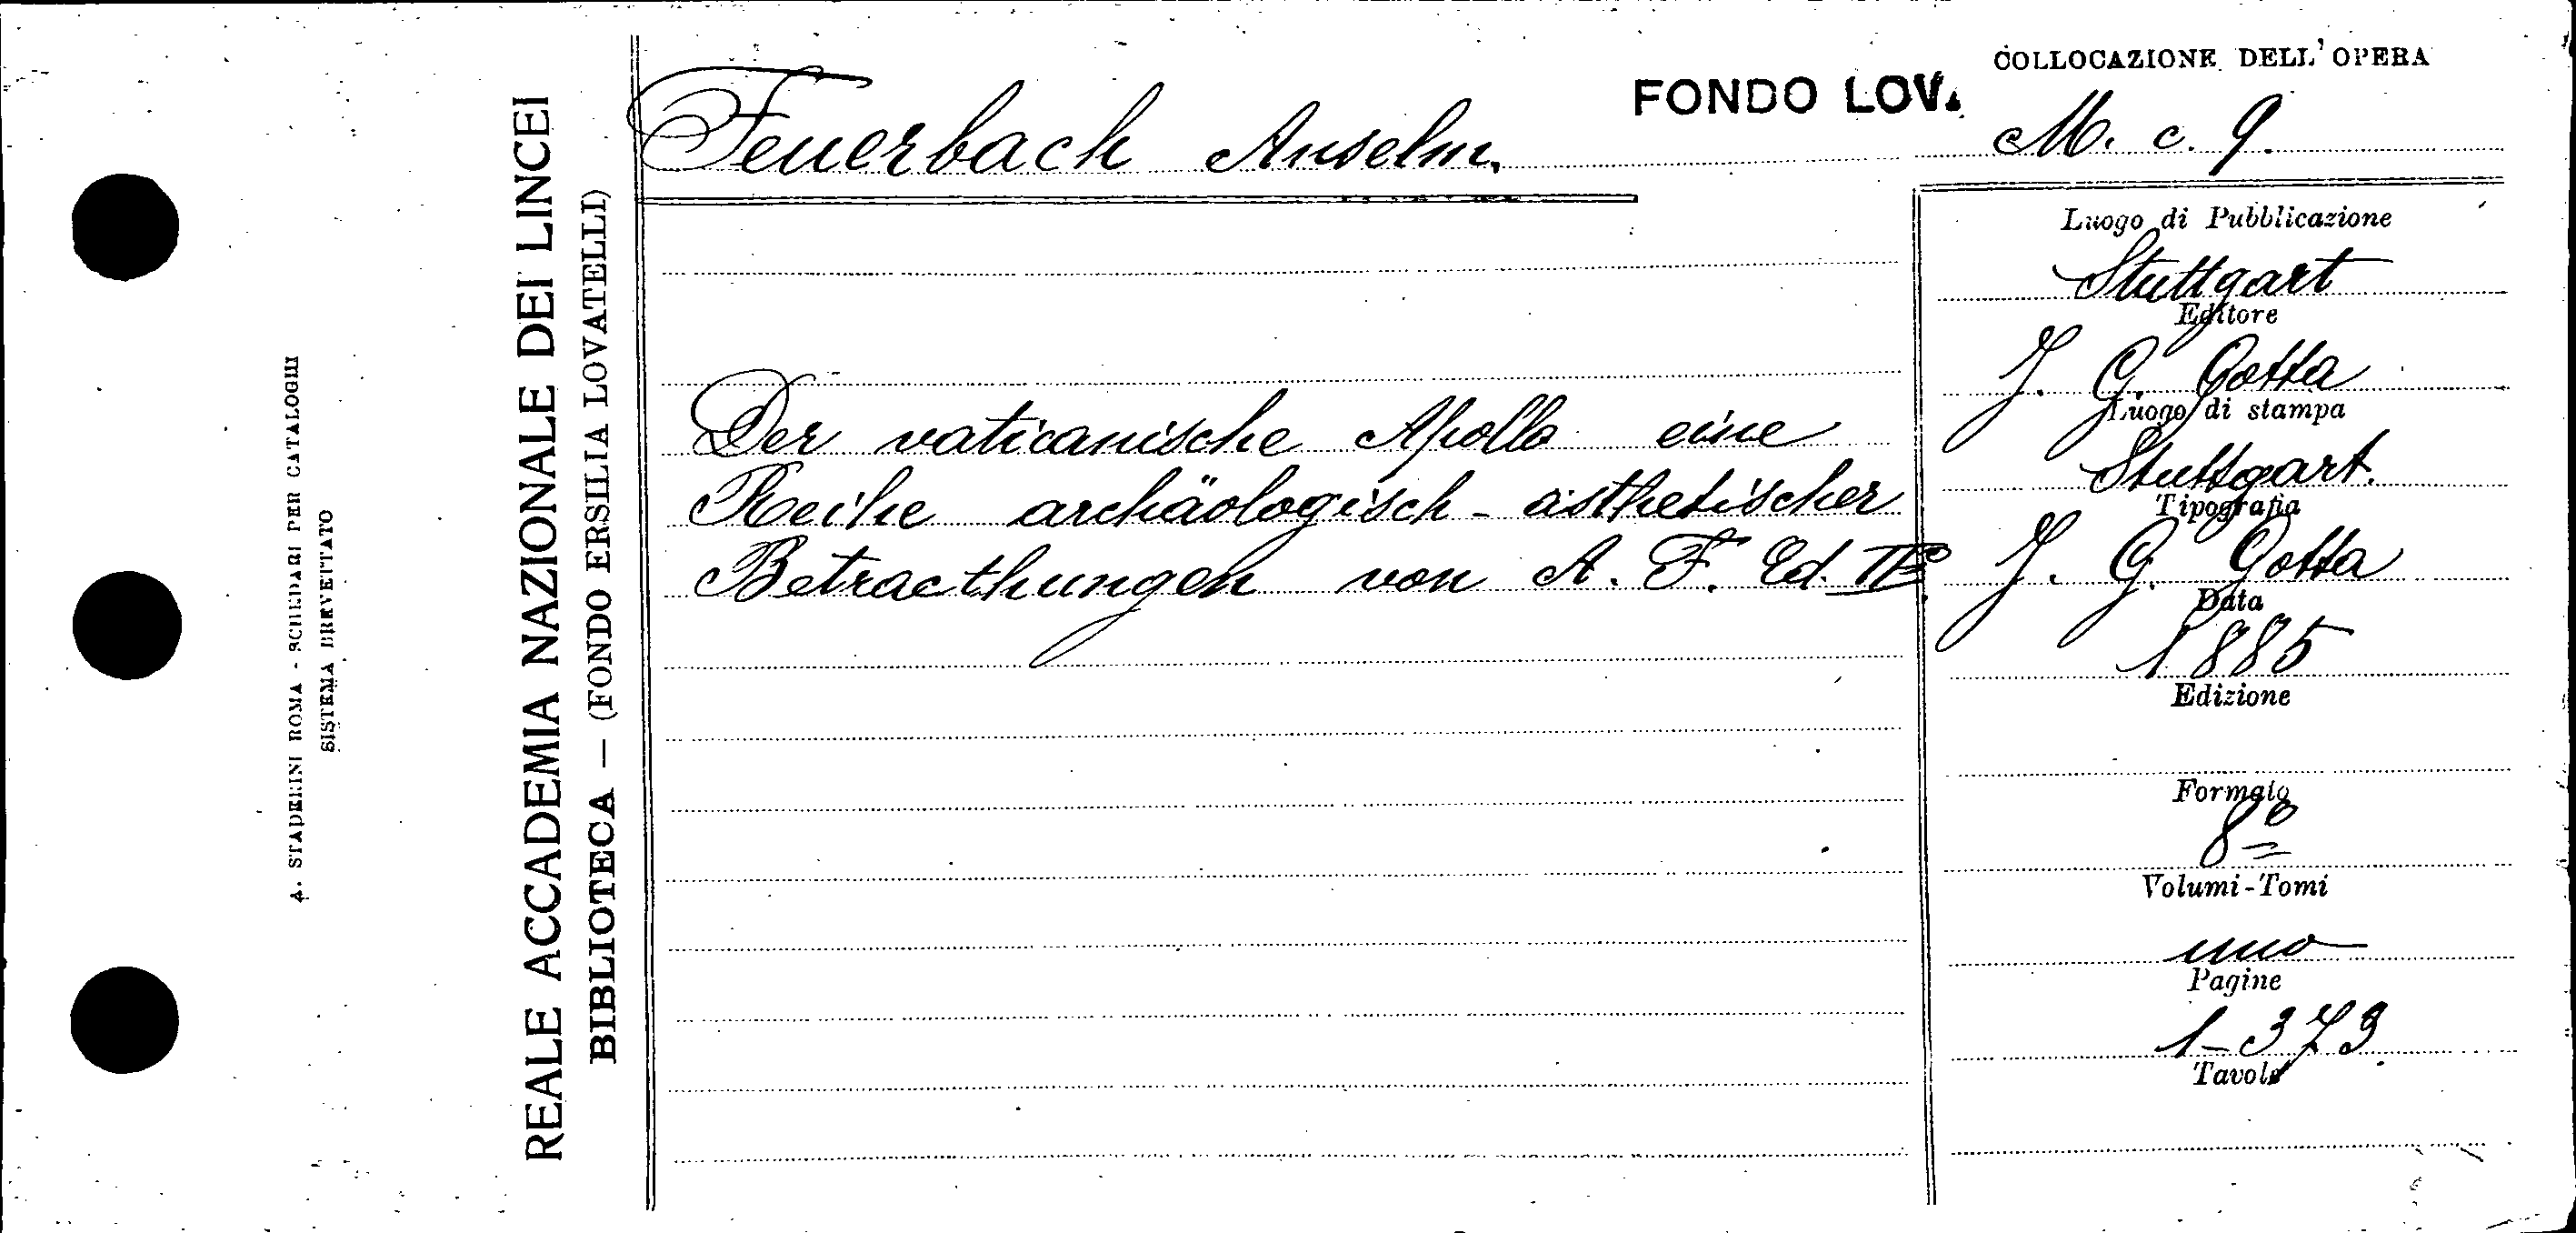 COLLOCAZIONE DELL' OPERA
FONDO LOV.
Feuerbach Anselm.
M. c. 9.
Der vaticanische Apollo eine
Reihe archäologisch-ästhetischer
Betracthungen von A. F. Ed. IIª
Luogo di Pubblicazione
Stuttgart
Editore
J. G. Gotta
Luogo di stampa
Stuttgart.
Tipografia
J. G. Gotta
Data
1885
Edizione
Formato
8º
Volumi-Tomi
uno
Pagine
1-373
Tavole
REALE ACCADEMIA NAZIONALE DEI LINCEI
BIBLIOTECA — (FONDO ERSILIA LOVATELLI)
A. STADERINI ROMA - SCHEDARI PER CATALOGHI
SISTEMA BREVETTATO